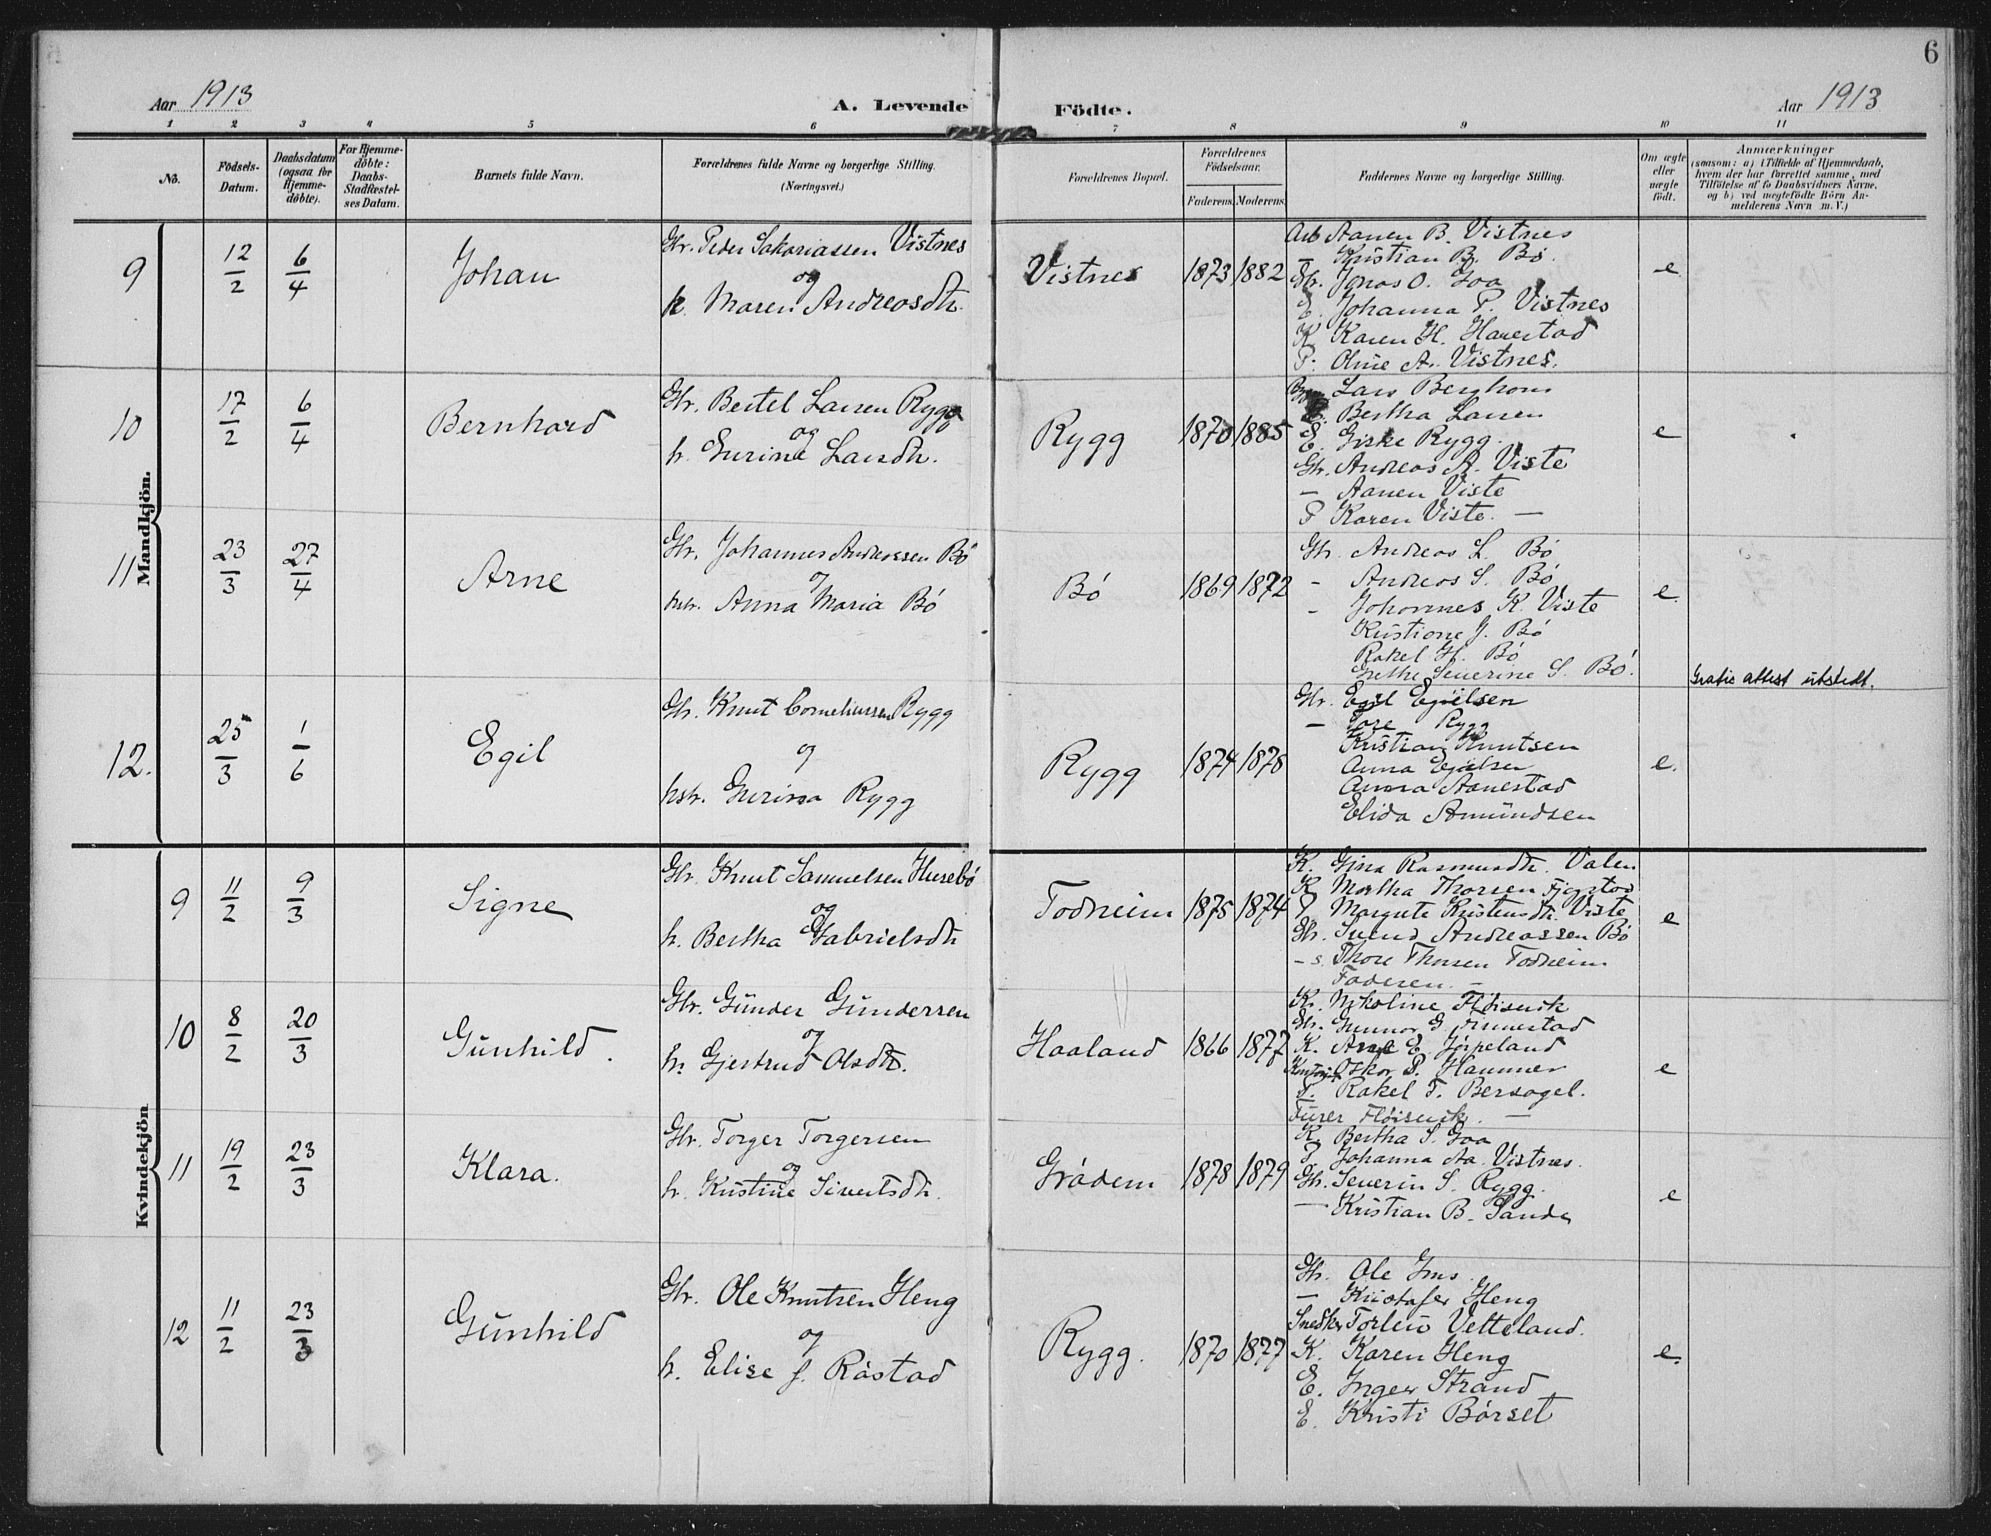 6
Aar 1913
A. Levende Födte.
Aar 1913
1 2 3 4 5 6 7 8 9 10 11
No.
Födsels-
Datum.
Daabsdatum
(ogsaa for
Hjemme-
döbte).
For Hjemme-
döbte:
Daabs-
Stadfæstel-
ses Datum.
Barnets fulde Navn.
Forældrenes fulde Navne og borgerlige Stilling.
(Næringsvei.)
Forældrenes Bopæl.
Forældrenes
Födselsaar.
Faderens. Moderens.
Faddernes Navne og borgerlige Stilling.
Om ægte
eller
uægte
födt.
Anmærkninger
(saasom: a) i Tilfælde af Hjemmedaab,
hvem der har forrettet samme, med
Tilföielse af to Daabsvidners Navne,
og b) ved uægtefödte Börn An-
melderens Navn m. V.)
Mandkjön.
9 12/2 6/4 Johan
Gbr. Peder Sakariassen Vistnes
og
h. Maren Andreasdtr.
Vistnes 1873 1882
Arb Aanen B. Vistnes
— Kristian B. Bö.
Gbr. Jonas O. Goa
E. Johanna P. Vistnes
K. Karen H. Harestad
P. Oline A. Vistnes.
e
10 17/2 6/4 Bernhard
Gbr. Bertel Larsen Rygg
og
h. Gurine Larsdtr.
Rygg 1870 1885
Lars Berghom
Bertha Larsen
E. Giske Rygg.
Gbr. Andreas A. Viste
— Aanen Viste
P Karen Viste. —
e
11 23/3 27/4 Arne
Gbr. Johannes Andreassen Bö
og
hstr. Anna Maria Bö
Bö 1869 1872
Gbr. Andreas L. Bö
- Andreas S. Bö
- Johannes K. Viste
Kristiane J. Bö
Rakel H. Bö
Grethe Severine S. Bö.
e.
Gratis attest utstedt.
12. 25/3 1/6 Egil
Gbr. Knut Corneliussen Rygg
og
hstr. Gurina Rygg
Rygg 1874 1878
Gbr. Egil Egilsen
— Tore Rygg
Kristian Knutsen
Anna Egilsen
Anna Aanestad
Elida Amundsen
e.
Kvindekjön
9 11/2 9/3 Signe
Gbr. Knut Samuelsen Husebö
og
h. Bertha Gabrielsdtr
Todneim 1875 1874
K. Gina Rasmusdtr. Valen
K. Martha Thorsen Fjogstad
P Margrete Kristensdtr. Viste
Gbr. Svend Andreassen Bö
- s. Thore Thorsen Todneim
Faderen. —
e
10 8/2 20/3 Gunhild.
Gbr. Gunder Gundersen
og
h. Gjertrud Olsdtr.
Haaland 1866 1877
K. Nikoline Flöisvik
Gbr. Gunnar G. Finnestad
K. Ane E. Jörpeland
Oskar P. Hammer
P. Rakel T. Bersagel.
Flöisvik. —
e
11 19/2 23/3 Klara.
Gbr. Torger Torgersen
og
h. Kristine Sivertsdtr.
Grödem 1878 1879
K. Bertha S. Goa
P Johanna Aa. Vistnes.
Gbr. Severin S. Rygg.
— Kristian B. Sande
e
12 11/2 23/3 Gunhild
Gbr. Ole Knutsen Heng
og
h. Elise J. Röstad
Rygg. 1870 1877
Gbr. Ole Ims.
— Kristofer Heng
Snedker Torleiv Vetteland.
K. Karen Heng
E. Inger Strand
E. Kristi Börset
e.